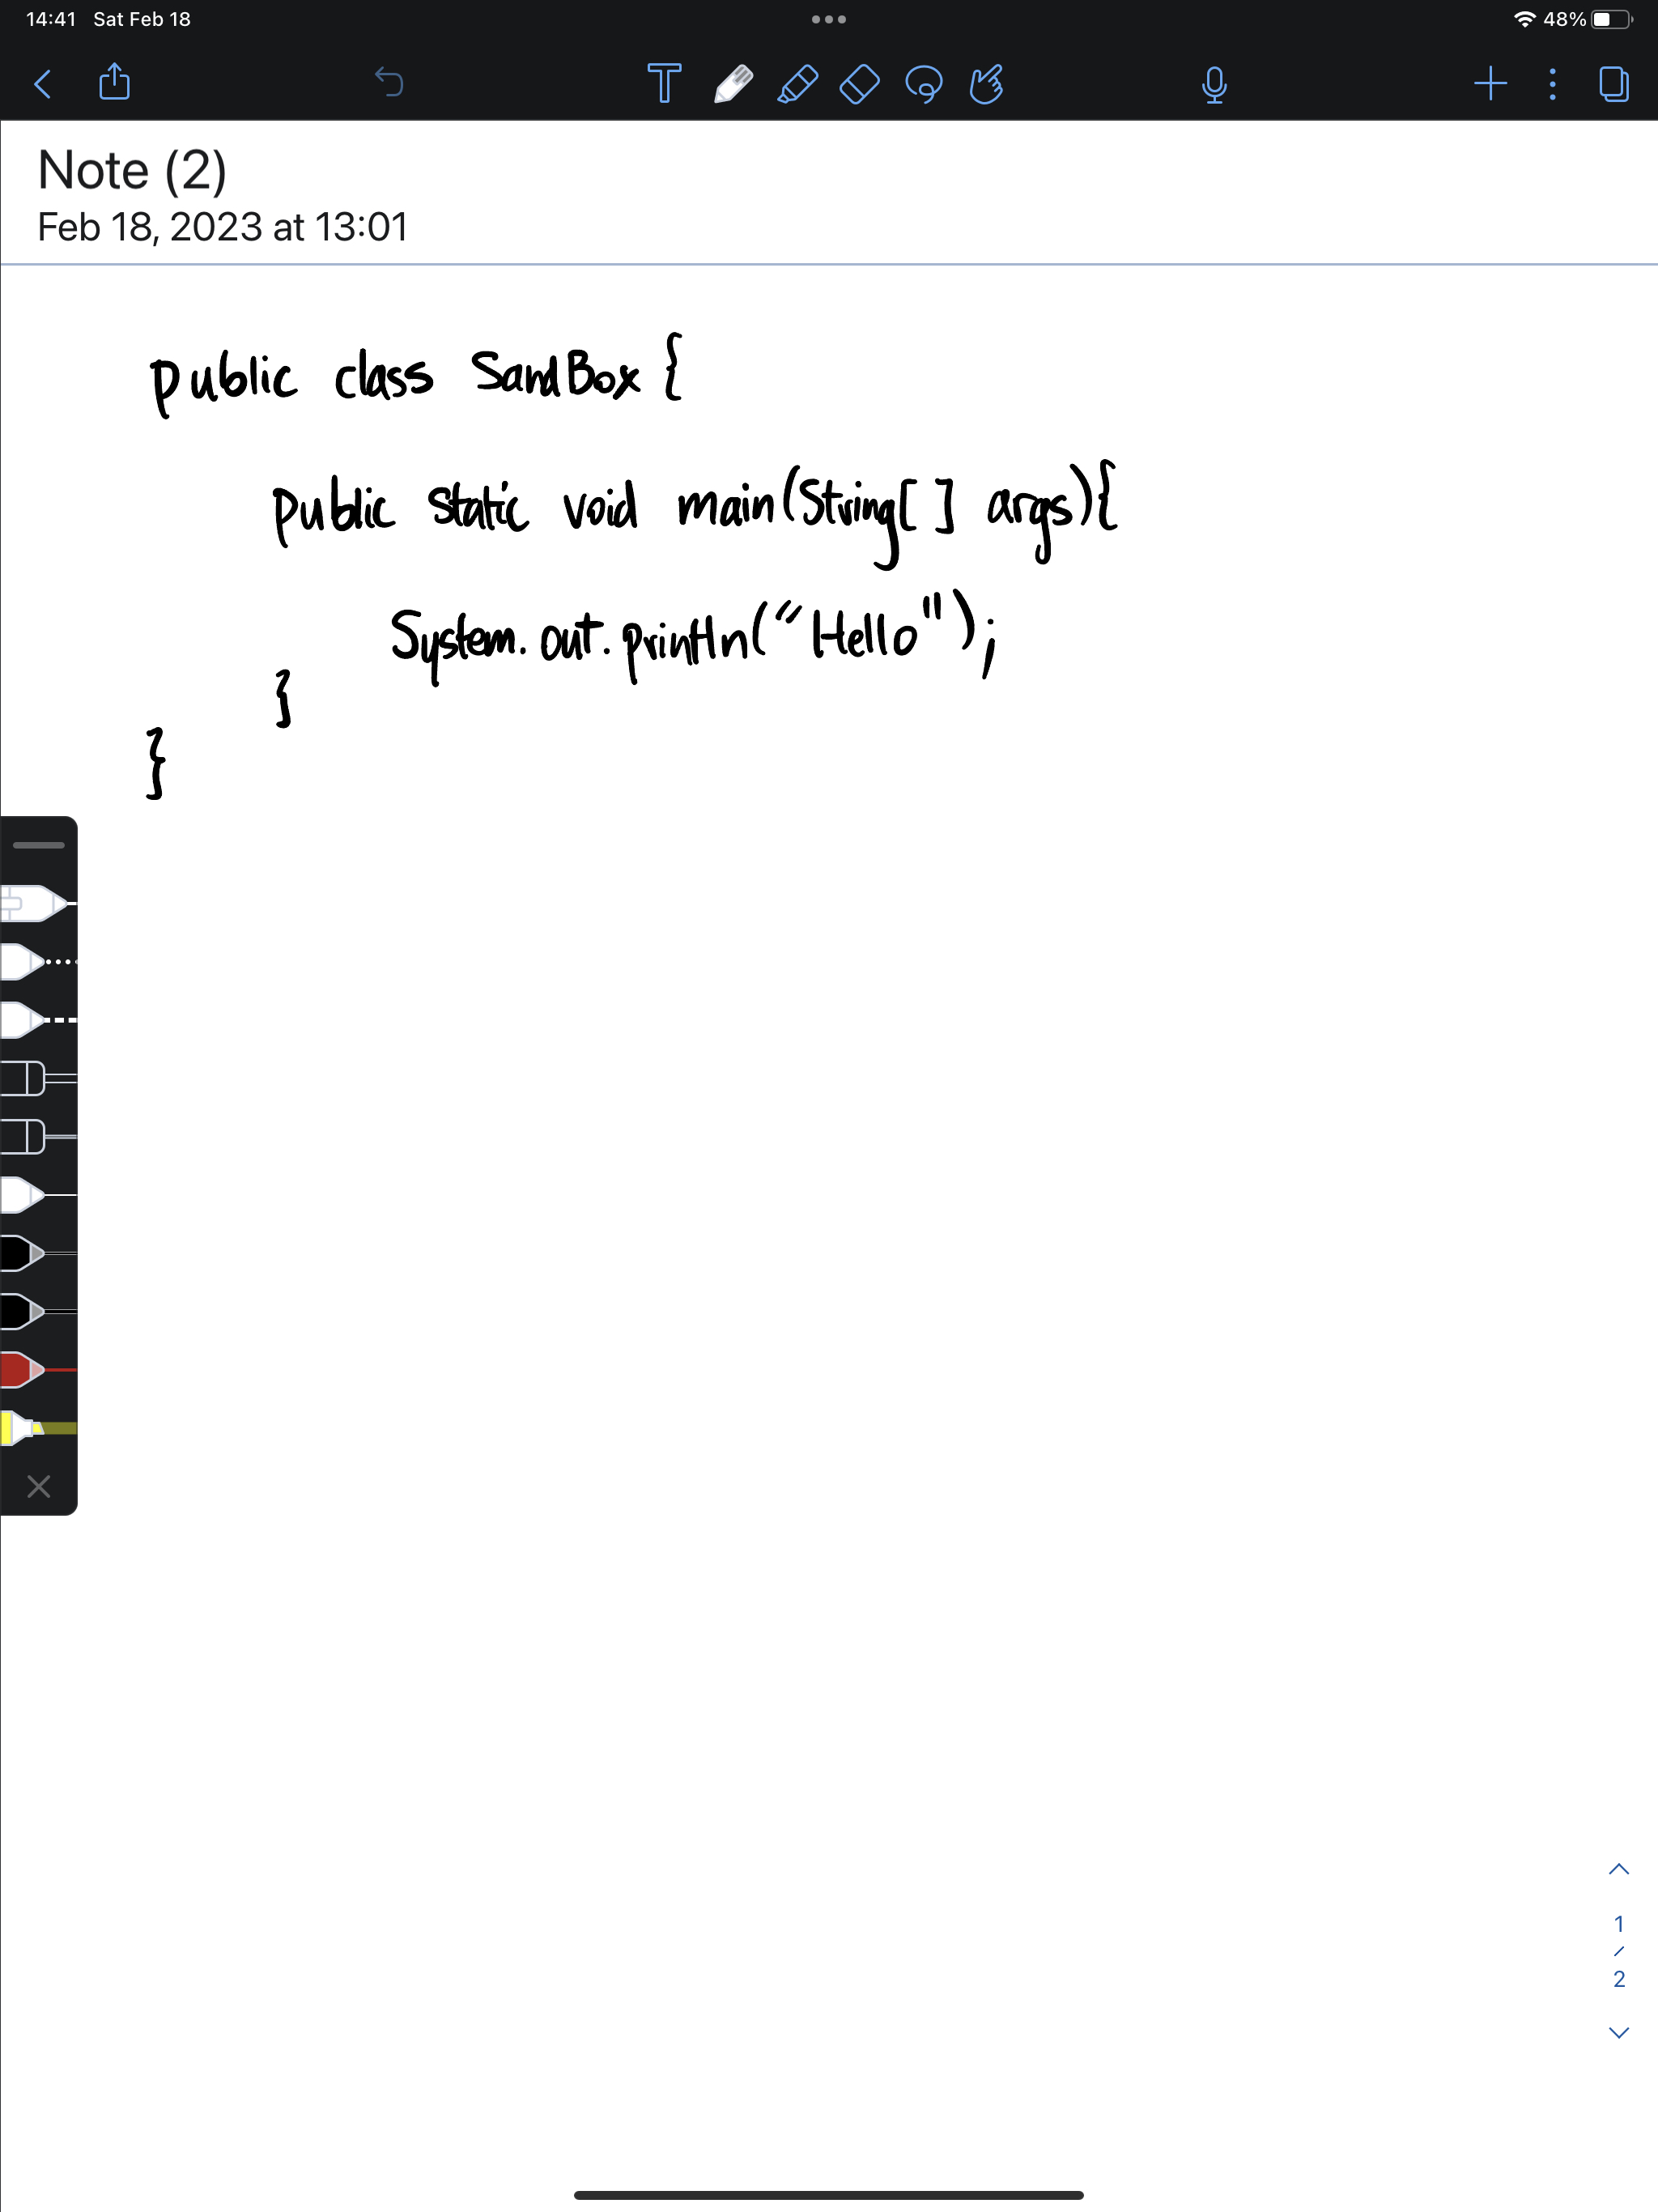 14:41 Sat Feb 18 48%
Note (2)
Feb 18, 2023 at 13:01
public class SandBox {
public static void main(String[] args){
System.out.println("Hello");
}
}
1
/
2